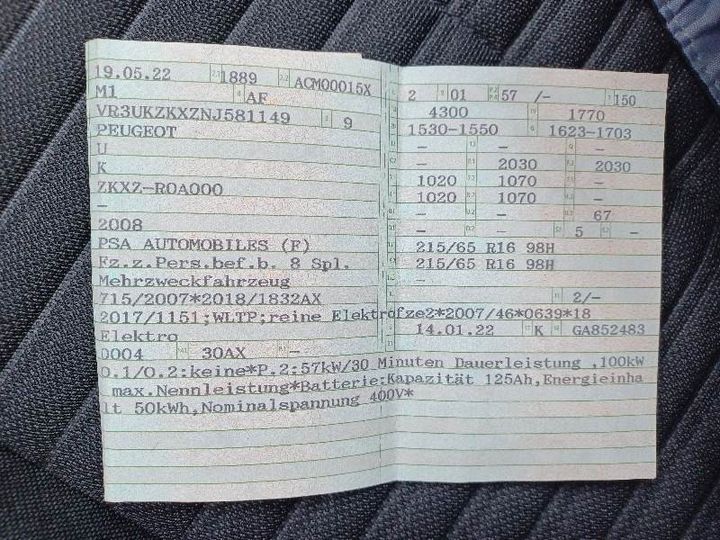 19.05.22 1889 ACM00015X
M1 AF
VR3UKZKXZNJ581149 9
PEUGEOT
U
K
ZKXZ-R0A000
–
2008
PSA AUTOMOBILES (F)
Fz.z.Pers.bef.b. 8 Spl.
Mehrzweckfahrzeug
715/2007*2018/1832AX
2017/1151;WLTP;reine Elektrofz
Elektro
0004 30AX –
2 01 57 /– 150
4300 1770
1530–1550 1623–1703
– – –
– 2030 2030
1020 1070 –
1020 1070 –
– – 67
– 5 –
215/65 R16 98H
215/65 R16 98H
–
11 2/–
e2*2007/46*0639*18
14.01.22 K GA852483
O.1/O.2:keine*P.2:57kW/30 Minuten Dauerleistung ,100kW
max.Nennleistung*Batterie:Kapazität 125Ah,Energieinha
lt 50kWh,Nominalspannung 400V*